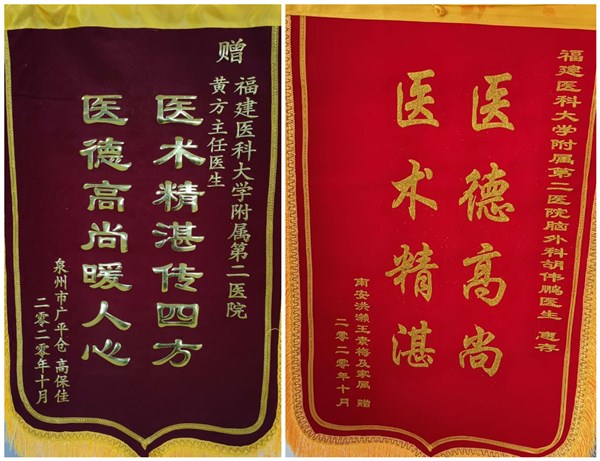 赠
福建医科大学附属第二医院
黄方主任医生
医术精湛传四方
医德高尚暖人心
泉州市广平仓 高保佳
二零二零年十月
福建医科大学附属第二医院脑外科胡伟鹏医生 惠存
医德高尚
医术精湛
南安洪濑王素梅及家属 赠
二零二零年十月